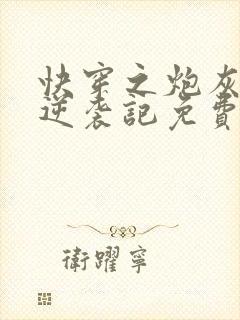 快穿之炮灰
逆袭記免費
衛躍寧